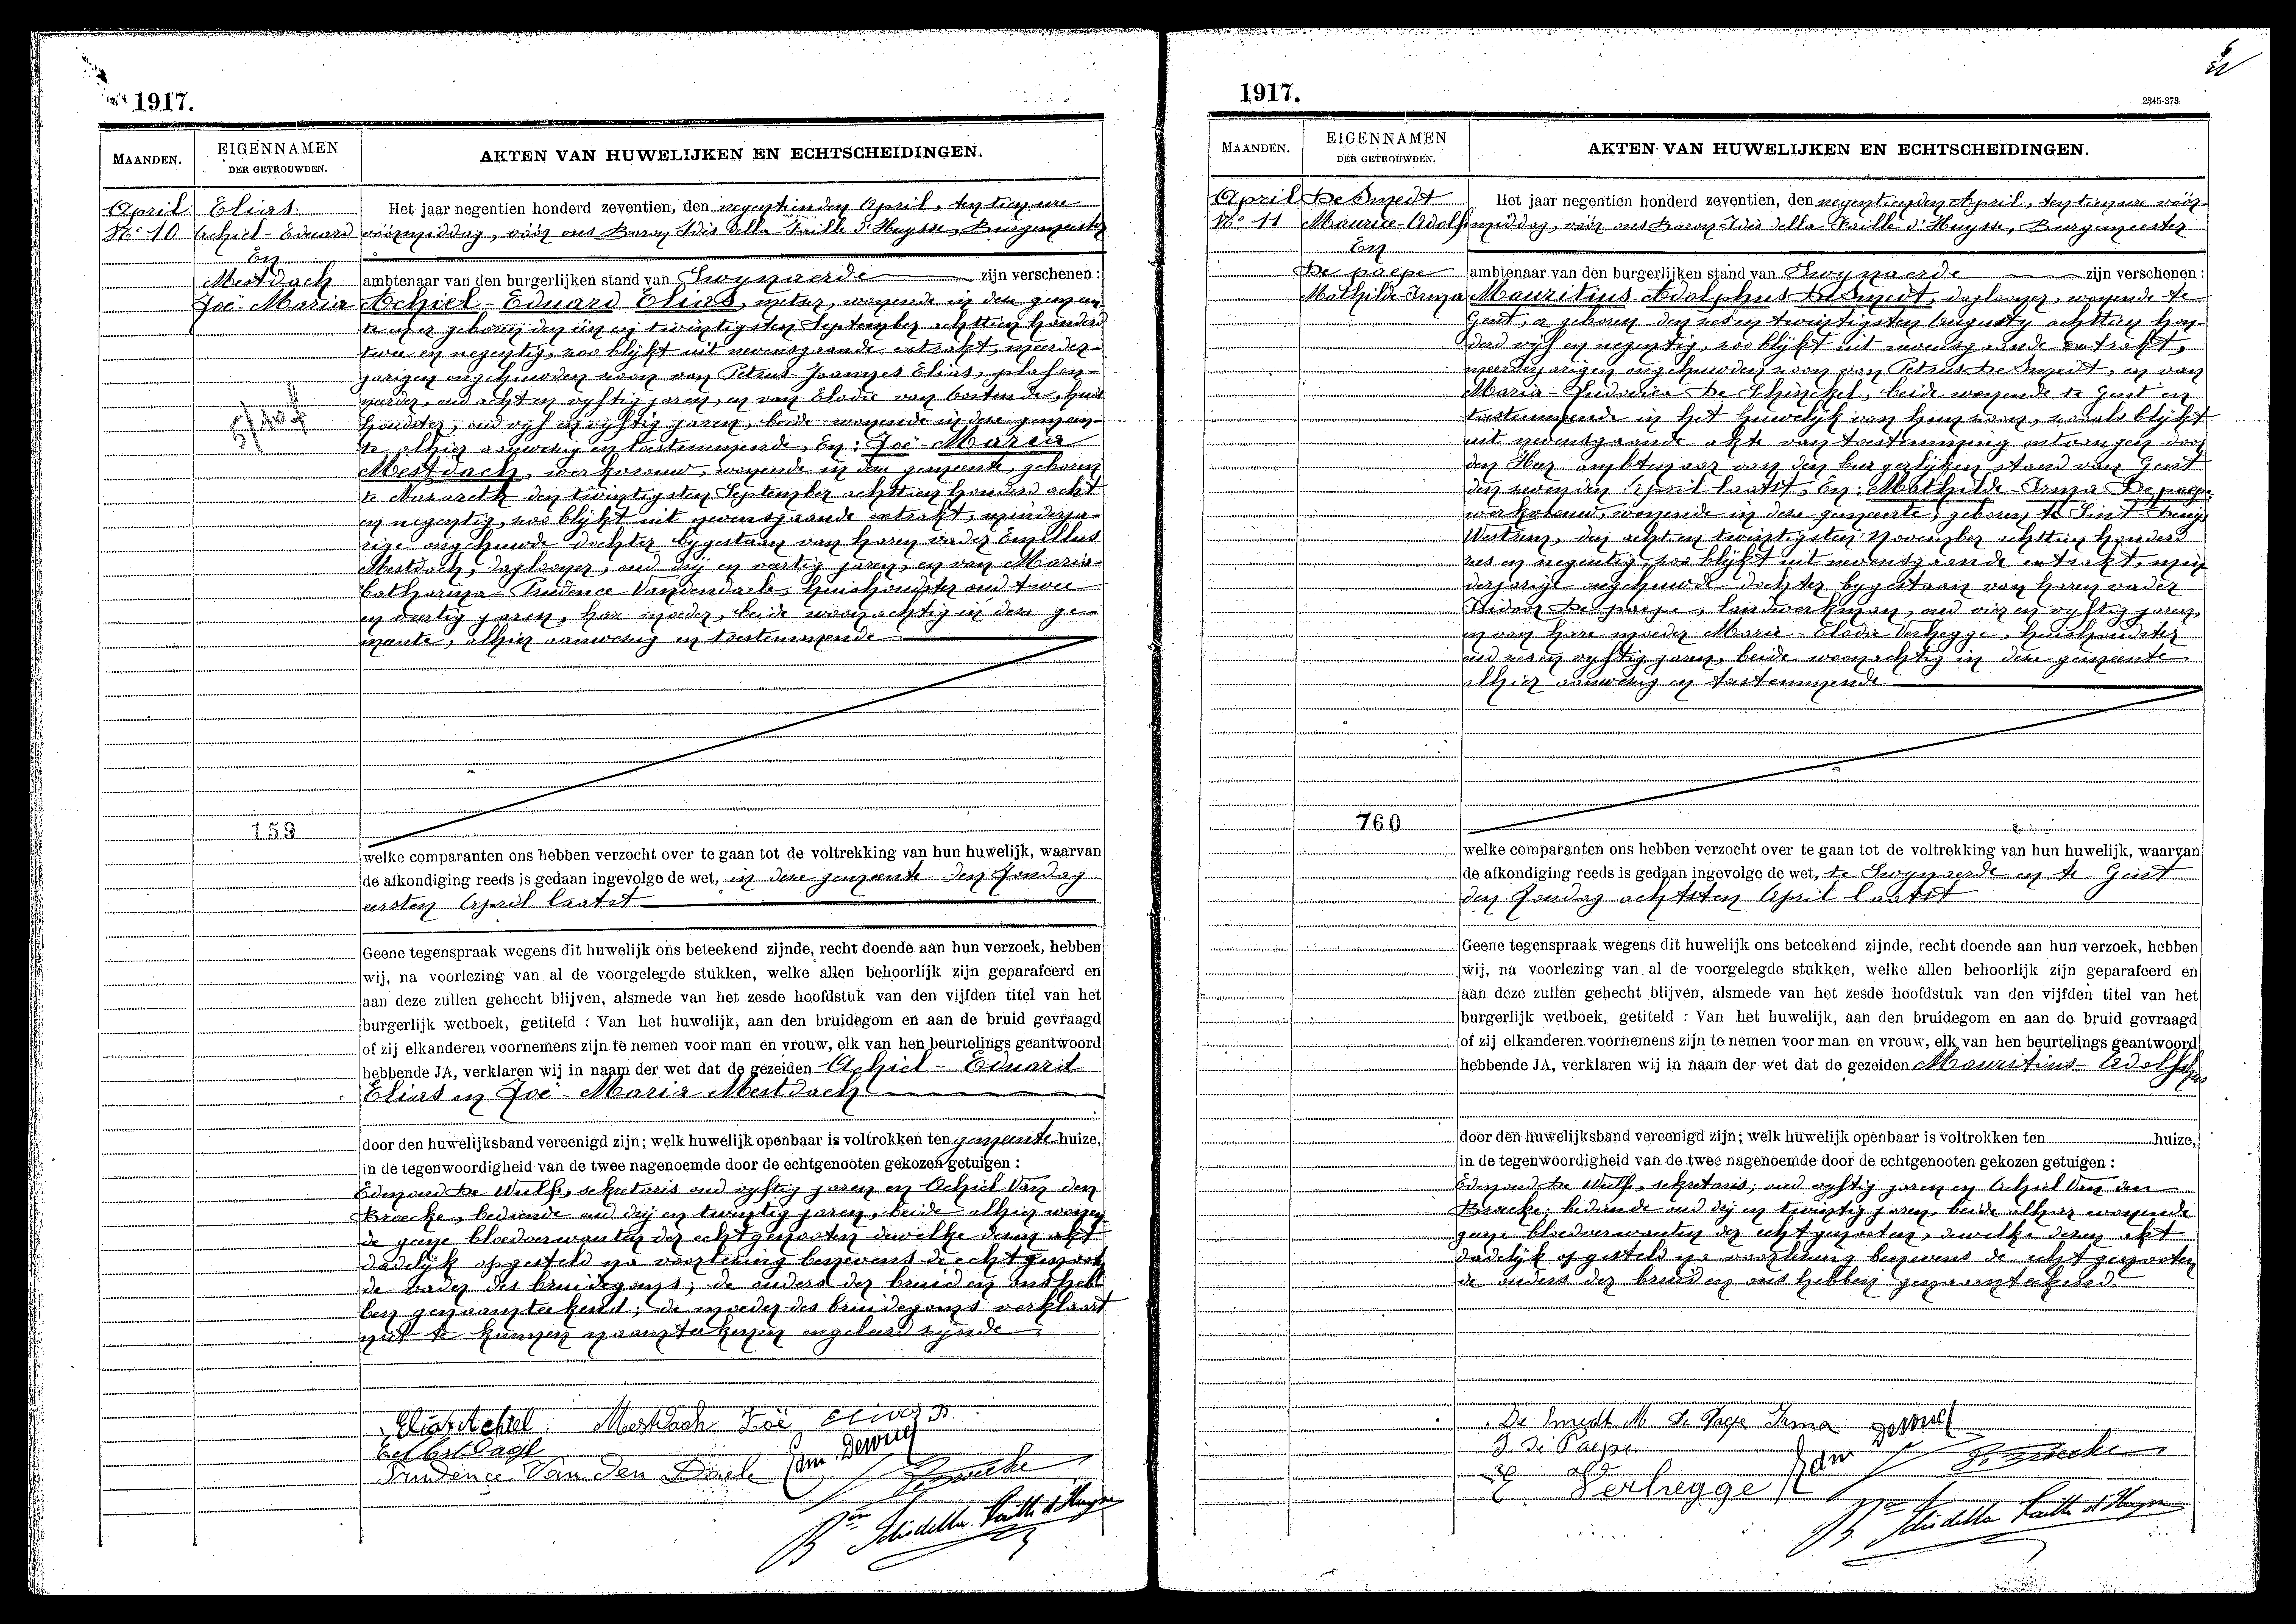 1917.
MAANDEN.
EIGENNAMEN
DER GETROUWDEN.
AKTEN VAN HUWELIJKEN EN ECHTSCHEIDINGEN.
April
No 10
Elias
Achiel-Eduard
En
Mestdach
Zoë-Maria
159
Het jaar negentien honderd zeventien, den negentienden April, ten tien ure
vóórmiddag, vóór ons Baron Idis della Faille d'Huysse, Burgemeester
ambtenaar van den burgerlijken stand van Swynaerde zijn verschenen :
Achiel-Eduard Elias, metser, wonende in deze gemeen-
te en er geboren den een en twintigsten September achttien honderd
twee en negentig, zoo blijkt uit nevensgaande extrakt, meerder-
jarigen ongehuwden zoon van Petrus-Joannes Elias, plafon-
neerder, oud acht en vyftig jaren, en van Elodie van Oostende, huis
houdster, oud vyf en vyftig jaren, beide wonende in deze gemeen-
te alhier aanwezig en toestemmende, En: Zoë-Maria
Mestdach, werkvrouw, wonende in deze gemeente, geboren
te Nazareth den twintigsten September achttien honderd acht
en negentig, zoo blijkt uit nevensgaande extrakt, minderja-
rige ongehuwde dochter bygestaan van haren vader Emillus
Mestdach, daglooner, oud drij en veertig jaren, en van Maria-
Catharina-Prudence Vandendaele, huishoudster oud twee
en veertig jaren, hare moeder, beide woonachtig in deze ge-
meente, alhier aanwezig en toestemmende
welke comparanten ons hebben verzocht over te gaan tot de voltrekking van hun huwelijk, waarvan
de afkondiging reeds is gedaan ingevolge de wet, in deze gemeente den Zondag
eersten April laatst
Geene tegenspraak wegens dit huwelijk ons beteekend zijnde, recht doende aan hun verzoek, hebben
wij, na voorlezing van al de voorgelegde stukken, welke allen behoorlijk zijn geparafeerd en
aan deze zullen gehecht blijven, alsmede van het zesde hoofdstuk van den vijfden titel van het
burgerlijk wetboek, getiteld : Van het huwelijk, aan den bruidegom en aan de bruid gevraagd
of zij elkanderen voornemens zijn te nemen voor man en vrouw, elk van hen beurtelings geantwoord
hebbende JA, verklaren wij in naam der wet dat de gezeiden Achiel-Eduard
Elias en Zoë-Maria Mestdach
door den huwelijksband vereenigd zijn; welk huwelijk openbaar is voltrokken ten gemeente huize,
in de tegenwoordigheid van de twee nagenoemde door de echtgenooten gekozen getuigen :
Edmond De Wulf, sekretaris oud vyftig jaren en Achiel Van den
Broecke, bediende oud drij en twintig jaren, beide alhier wonen
de geene bloedverwanten der echtgenooten dewelke dezen akt
dadelijk opgesteld na voorlezing benevens de echtgenoot
de vader des bruidegoms; de ouders der bruid en ons heb
ben genaamteekend; de moeder des bruidegoms verklaart
niet te kunnen naamteekenen ongeleerd zijnde
Elias Achiel Mestdach Zoë Elias P
Prudence Van Den Daele Edm Dewulf
Bon Idis della Faille d'Huysse
1917.
2345-373
MAANDEN.
EIGENNAMEN
DER GETROUWDEN.
AKTEN VAN HUWELIJKEN EN ECHTSCHEIDINGEN.
April
No 11
De Smedt
Maurice-Adolf
En
De paepe
Mathilde-Irma
760
Het jaar negentien honderd zeventien, den negentienden April, ten tien ure vóór-
middag, vóór ons Baron Idis della Faille d'Huysse, Burgemeester
ambtenaar van den burgerlijken stand van Swynaerde zijn verschenen :
Mauritius Adolphus De Smedt, daglooner, wonende te
Gent, er geboren den zes en twintigsten Augusty achttien hon-
derd vyf en negentig, zoo blijkt uit nevensgaande extrakt,
meerderjarigen ongehuwden zoon van Petrus De Smedt, en van
Maria-Ludovica De Schinckel, beide wonende te Gent en
toestemmende in het huwelijk van hun zoon, zooals blijkt
uit nevensgaande akte van toestemming ontvangen door
den Heer ambtenaar van den burgerlijken stand van Gent
den zevenden April laatst, En: Mathilde-Irma De paepe
werkvrouw, wonende in deze gemeente, geboren te Sint Denys
Westrem, den acht en twintigsten November achttien honderd
zes en negentig, zoo blijkt uit nevensgaande extrakt, min
derjarige ongehuwde dochter bygestaan van haren vader
Isidoor De paepe, landwerkman, oud vier en vyftig jaren,
en van hare moeder Marie-Elodie Verhegge, huishoudster
oud zes en vyftig jaren, beide woonachtig in deze gemeente
alhier aanwezig en toestemmende
welke comparanten ons hebben verzocht over te gaan tot de voltrekking van hun huwelijk, waarvan
de afkondiging reeds is gedaan ingevolge de wet, te Swynaerde en te Gent
den Zondag achtsten April laatst
Geene tegenspraak wegens dit huwelijk ons beteekend zijnde, recht doende aan hun verzoek, hebben
wij, na voorlezing van al de voorgelegde stukken, welke allen behoorlijk zijn geparafeerd en
aan deze zullen gehecht blijven, alsmede van het zesde hoofdstuk van den vijfden titel van het
burgerlijk wetboek, getiteld : Van het huwelijk, aan den bruidegom en aan de bruid gevraagd
of zij elkanderen voornemens zijn te nemen voor man en vrouw, elk van hen beurtelings geantwoord
hebbende JA, verklaren wij in naam der wet dat de gezeiden Mauritius-Adolphus
door den huwelijksband vereenigd zijn; welk huwelijk openbaar is voltrokken ten huize,
in de tegenwoordigheid van de twee nagenoemde door de echtgenooten gekozen getuigen :
Edmond De Wulf, sekretaris, oud vyftig jaren en Achiel Van den
Broecke, bediende oud drij en twintig jaren, beide alhier wonende
geene bloedverwanten der echtgenooten, dewelke dezen akt
dadelijk opgesteld na voorlezing benevens de echtgenooten
de ouders der bruid en ons hebben genaamteekend.
De Smedt M De Paepe Irma Dewulf
I De Paepe Edm
Verhegge
Bon Idis della Faille d'Huysse